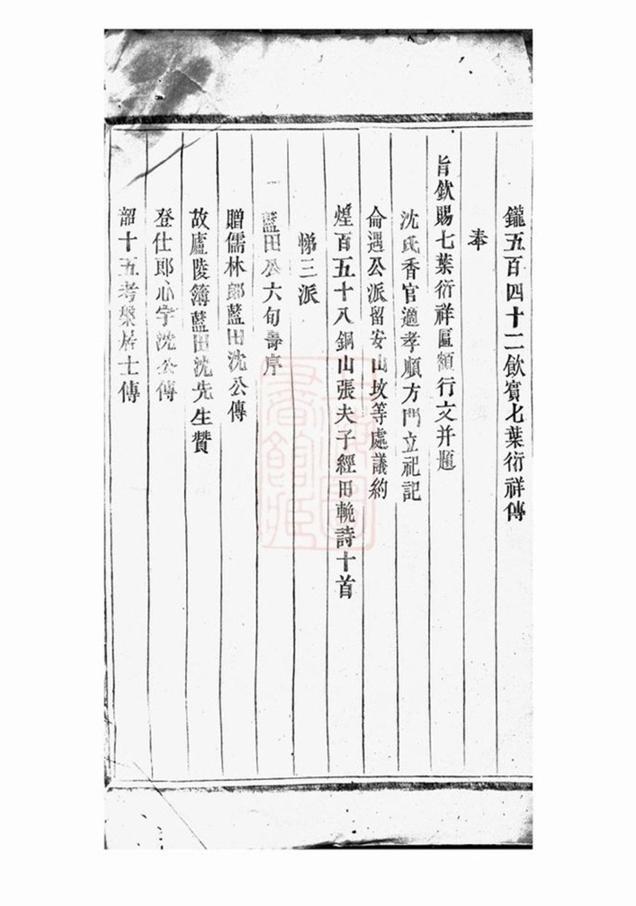 鑨五百四十二飲賓七葉衍祥傳
奉
旨欽賜七葉衍祥匾額行文并題
沈氏香官適孝順方門立祀記
侖遇公派留安山坟等處議約
煌百五十八銅山張夫子經田輓詩十首
悌三派
藍田公六旬壽序
贈儒林郎藍田沈公傳
故廬陵簿藍田沈先生贊
登仕郎心宇沈公傳
韶十五考槃居士傳